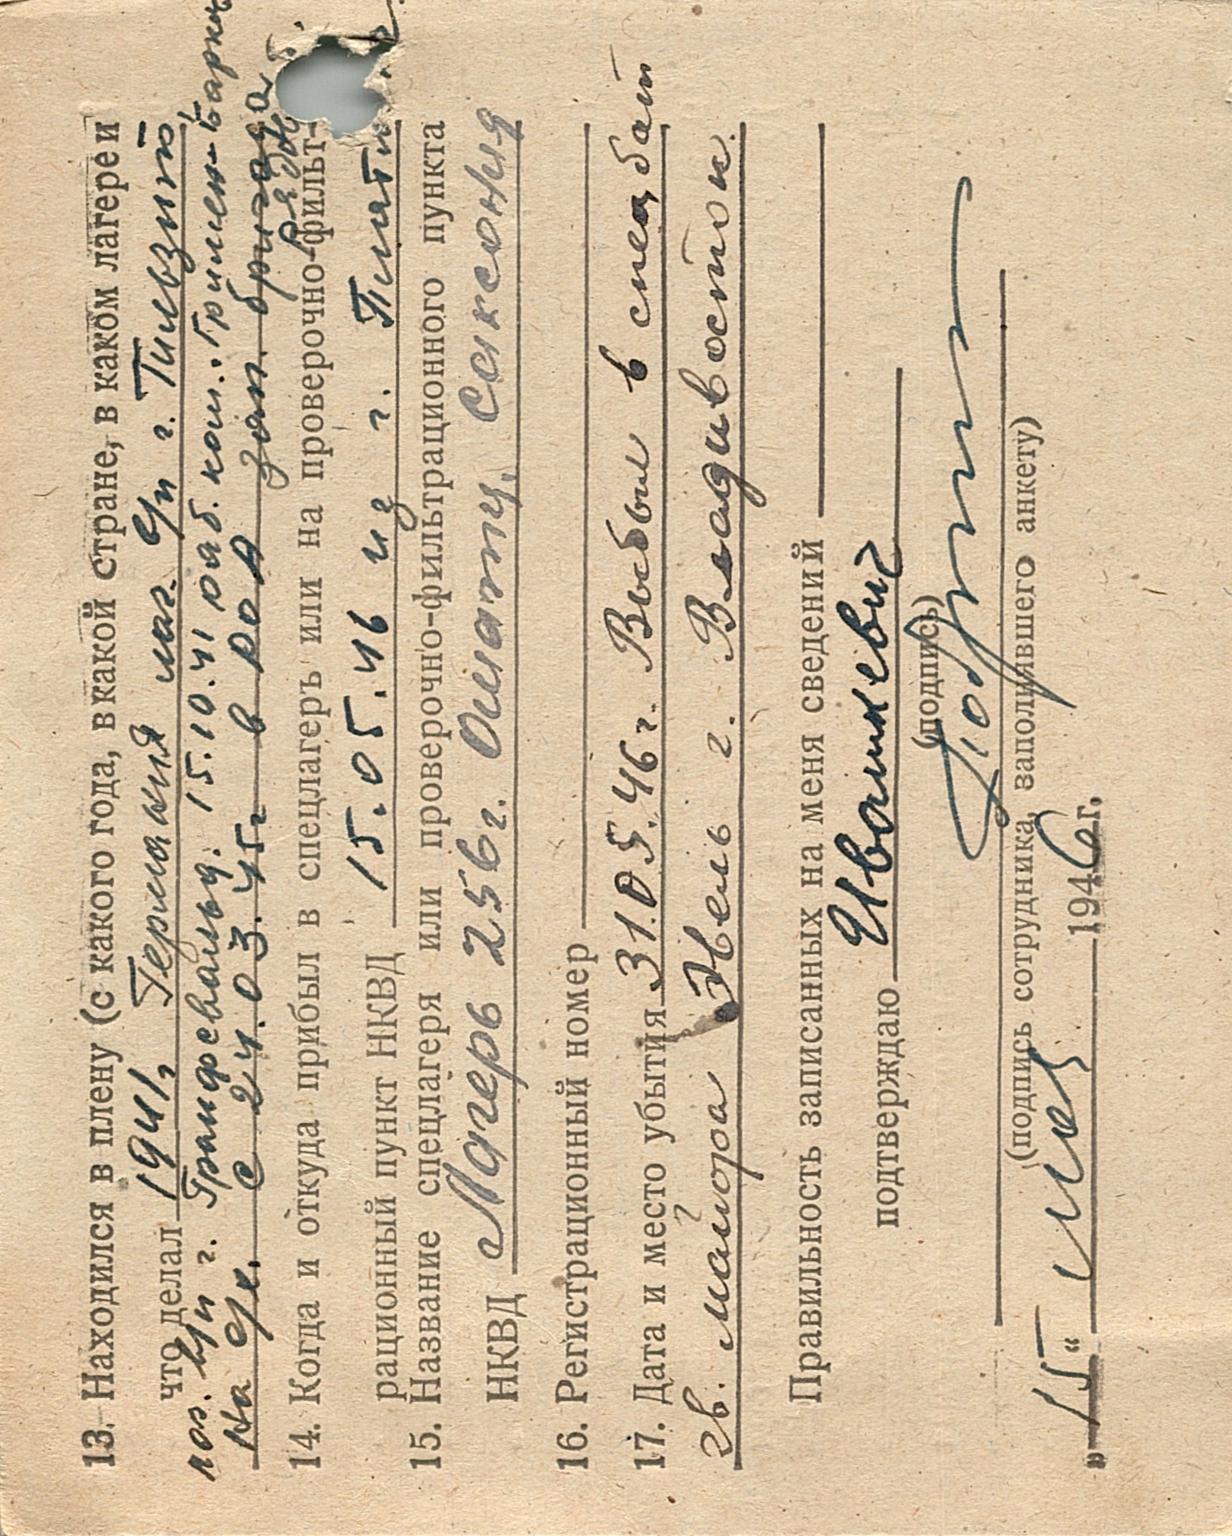 13. Находился в плену (с какого года, в какой стране, в каком лагере и
что делал 1941г Германия лаг. в/п г. Тильзит,
лаг. в/п г. 15.10.41 раб. ком.
на с/х. с 24.03.45г в РОА зап. бригада
рядов.
14. Когда и откуда прибыл в спецлагерь или на проверочно-фильт-
рационный пункт НКВД 15.05.46 из г.
15. Название спецлагеря или проверочно-фильтрационного пункта
НКВД Лагерь 256 г. Ошатц, Саксония
16. Регистрационный номер
17. Дата и место убытия 31.05.46 г. Выбыл в спецбат
гв. майора Нель г. Владивосток.
Правильность записанных на меня сведений
подтверждаю Ивашкевич
(подпись)
(подпись сотрудника, заполнившего анкету)
„15“ мая 1946 г.